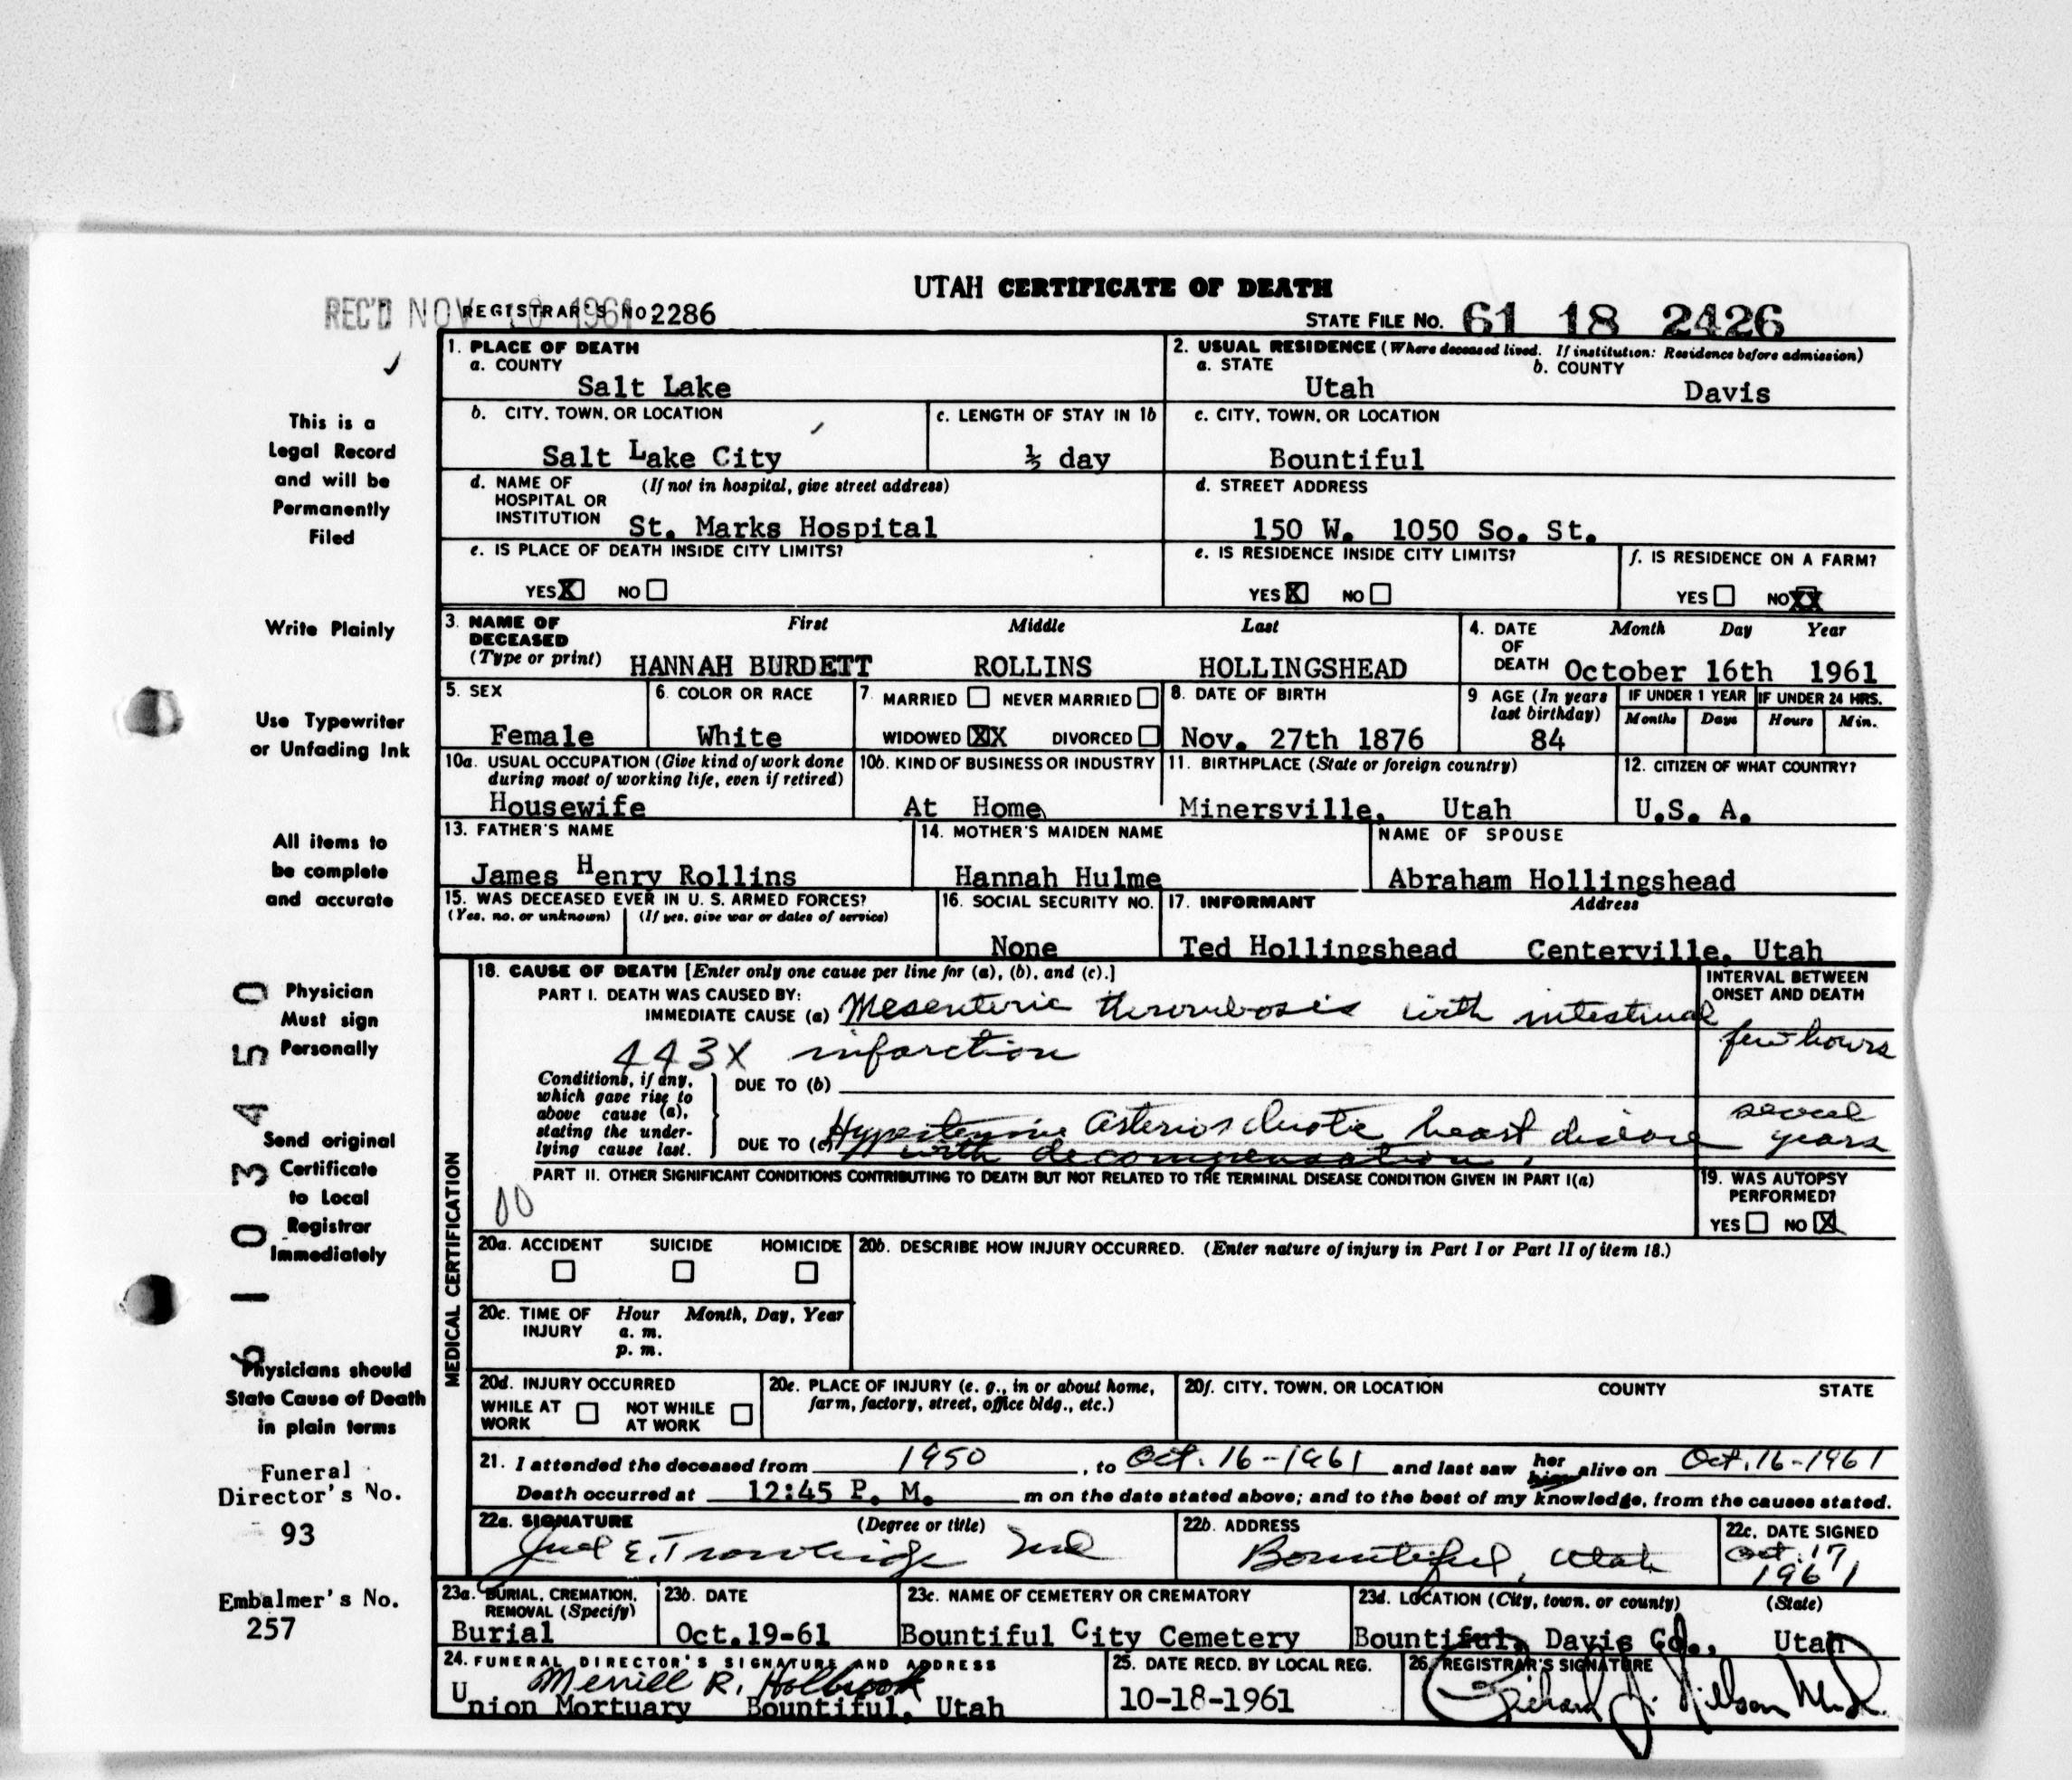 UTAH CERTIFICATE OF DEATH
REC'D NOV 1961 REGISTRAR'S NO. 2286
STATE FILE No. 61 18 2426
1. PLACE OF DEATH
a. COUNTY
Salt Lake
2. USUAL RESIDENCE (Where deceased lived. If institution: Residence before admission)
a. STATE b. COUNTY
Utah Davis
b. CITY, TOWN, OR LOCATION
Salt Lake City
c. LENGTH OF STAY IN 1b
½ day
c. CITY, TOWN, OR LOCATION
Bountiful
d. NAME OF HOSPITAL OR INSTITUTION (If not in hospital, give street address)
St. Marks Hospital
d. STREET ADDRESS
150 W. 1050 So. St.
e. IS PLACE OF DEATH INSIDE CITY LIMITS?
YES X NO
e. IS RESIDENCE INSIDE CITY LIMITS?
YES X NO
f. IS RESIDENCE ON A FARM?
YES NO XX
3. NAME OF DECEASED (Type or print) First Middle Last
HANNAH BURDETT ROLLINS HOLLINGSHEAD
4. DATE OF DEATH Month Day Year
October 16th 1961
5. SEX
Female
6. COLOR OR RACE
White
7. MARRIED NEVER MARRIED
WIDOWED XX DIVORCED
8. DATE OF BIRTH
Nov. 27th 1876
9 AGE (In years last birthday)
84
IF UNDER 1 YEAR IF UNDER 24 HRS.
Months Days Hours Min.
10a. USUAL OCCUPATION (Give kind of work done during most of working life, even if retired)
Housewife
10b. KIND OF BUSINESS OR INDUSTRY
At Home
11. BIRTHPLACE (State or foreign country)
Minersville, Utah
12. CITIZEN OF WHAT COUNTRY?
U.S. A.
13. FATHER'S NAME
James Henry Rollins
14. MOTHER'S MAIDEN NAME
Hannah Hulme
NAME OF SPOUSE
Abraham Hollingshead
15. WAS DECEASED EVER IN U. S. ARMED FORCES?
(Yes, no, or unknown) (If yes, give war or dates of service)
16. SOCIAL SECURITY NO.
None
17. INFORMANT Address
Ted Hollingshead Centerville, Utah
MEDICAL CERTIFICATION
18. CAUSE OF DEATH [Enter only one cause per line for (a), (b), and (c).]
INTERVAL BETWEEN ONSET AND DEATH
PART I. DEATH WAS CAUSED BY:
IMMEDIATE CAUSE (a) Mesenteric thrombosis with intestinal
443X infarction
few hours
Conditions, if any, which gave rise to above cause (a), stating the underlying cause last.
DUE TO (b)
DUE TO (c) Hypertensive arteriosclerotic heart disease
with decompensation.
several years
PART II. OTHER SIGNIFICANT CONDITIONS CONTRIBUTING TO DEATH BUT NOT RELATED TO THE TERMINAL DISEASE CONDITION GIVEN IN PART I(a)
19. WAS AUTOPSY PERFORMED?
YES NO X
20a. ACCIDENT SUICIDE HOMICIDE
20b. DESCRIBE HOW INJURY OCCURRED. (Enter nature of injury in Part I or Part II of item 18.)
20c. TIME OF INJURY Hour Month, Day, Year
a. m.
p. m.
20d. INJURY OCCURRED
WHILE AT WORK NOT WHILE AT WORK
20e. PLACE OF INJURY (e. g., in or about home, farm, factory, street, office bldg., etc.)
20f. CITY, TOWN, OR LOCATION COUNTY STATE
21. I attended the deceased from 1950, to Oct. 16-1961 and last saw her him alive on Oct. 16-1961
Death occurred at 12:45 P. M. m on the date stated above; and to the best of my knowledge, from the causes stated.
22a. SIGNATURE (Degree or title)
E. Trowbridge Md
22b. ADDRESS
Bountiful, Utah
22c. DATE SIGNED
Oct. 17 1961
23a. BURIAL, CREMATION, REMOVAL (Specify)
Burial
23b. DATE
Oct.19-61
23c. NAME OF CEMETERY OR CREMATORY
Bountiful City Cemetery
23d. LOCATION (City, town, or county) (State)
Bountiful, Davis Co., Utah
24. FUNERAL DIRECTOR'S SIGNATURE AND ADDRESS
Merrill R. Holbrook
Union Mortuary Bountiful, Utah
25. DATE RECD. BY LOCAL REG.
10-18-1961
26. REGISTRAR'S SIGNATURE
Richard J. Nilson M.D.
This is a
Legal Record
and will be
Permanently
Filed
Write Plainly
Use Typewriter
or Unfading Ink
All items to
be complete
and accurate
Physician
Must sign
Personally
Send original
Certificate
to Local
Registrar
Immediately
Physicians should
State Cause of Death
in plain terms
61 03450
Funeral
Director's No.
93
Embalmer's No.
257